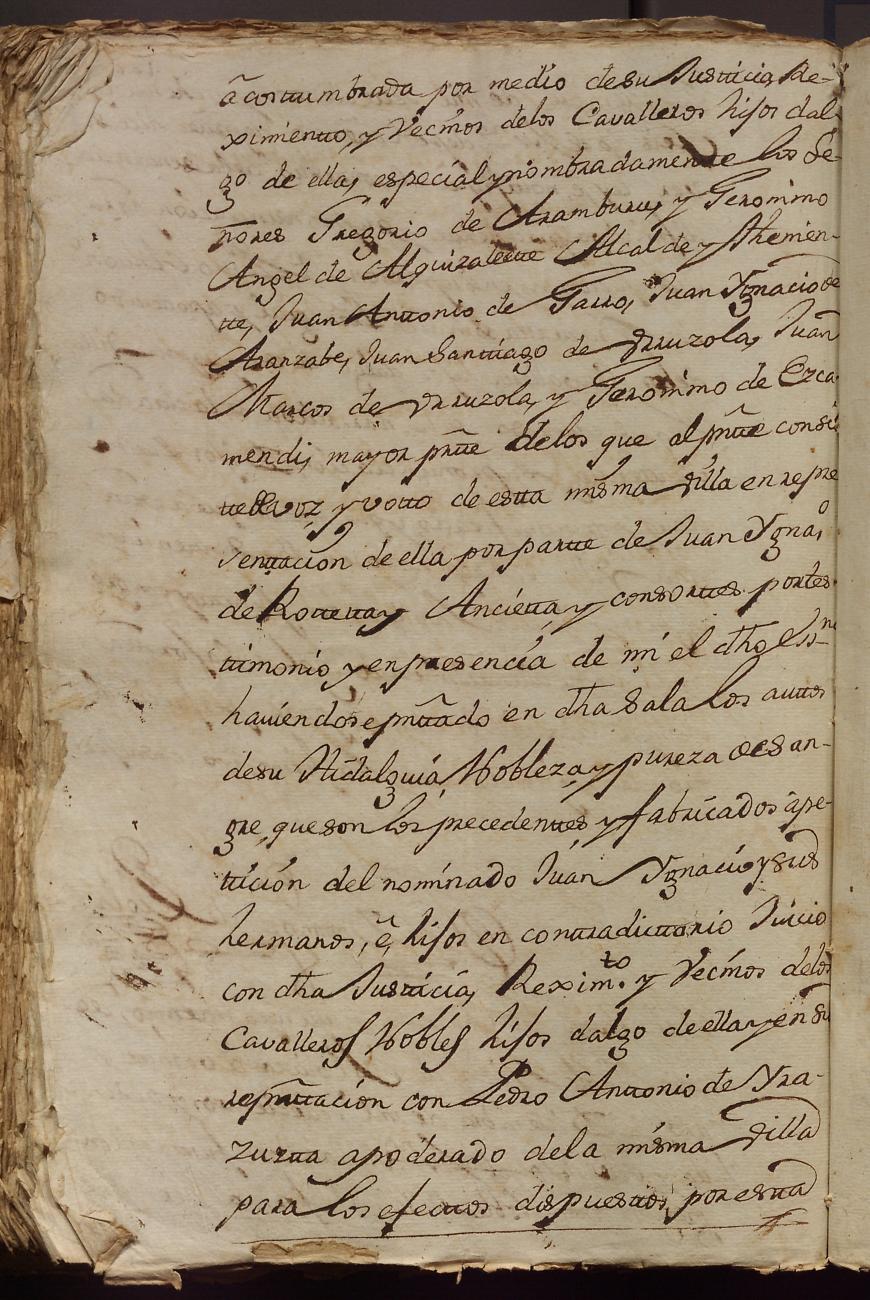 acostumbrada por medio de su Justicia, Re-
ximiento, y Vecinos delos Cavalleros hijos dal
go de ella, especial y nombradamente los Se-
ñores Gregorio de Aramburu, y Geronimo
Angel de Alquizalette Alcalde y Themien-
tte, Juan Anttonio de Garro, Juan Ygnacio de
Aranzabe, Juan Santtiago de Vrruzola, Juan
Marcos de Vrruzola, y Geronimo de Ezca
mendi, mayor prtte delos que al pntte consi
tte voz y votto de estta misma Villa en repre
senttacion de ella por partte de Juan Ygnaº
de Rottetta y Ancietta, y consorttes por tes
ttimonio y en presencia de mi el dho Essno
haviendose pnttado en dha Sala los auttos
de su Hidalguia, Nobleza, y pureza de San-
gre, que son los precedenttes y fabricados ápe-
ttición del nominado Juan Ygnacio y sus
hermanos, é hijos en conttradicttorio Juicio
con dha Justticia, Reximto. y Vecinos delos
Cavalleros Nobles hijos dalgo de ella y en su
repnttacion con Pedro Anttonio de Yra-
zuzta apoderado dela misma Villa
para los efecttos dispuesttos, por estta